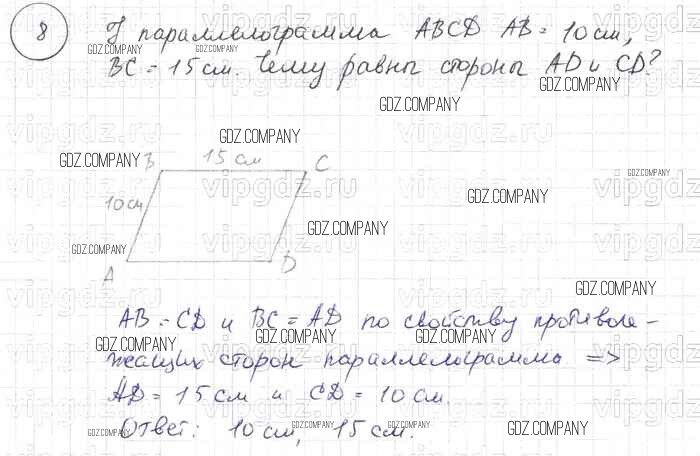 8 У параллелограмма ABCD AB = 10 см,
BC = 15 см. Чему равны стороны AD и CD?
B 15 см C
10 см
A D
AB = CD и BC = AD по свойству противоле-
жащих сторон параллелограмма =>
AD = 15 см и CD = 10 см.
Ответ: 10 см, 15 см.
GDZ.COMPANY
vipgdz.ru